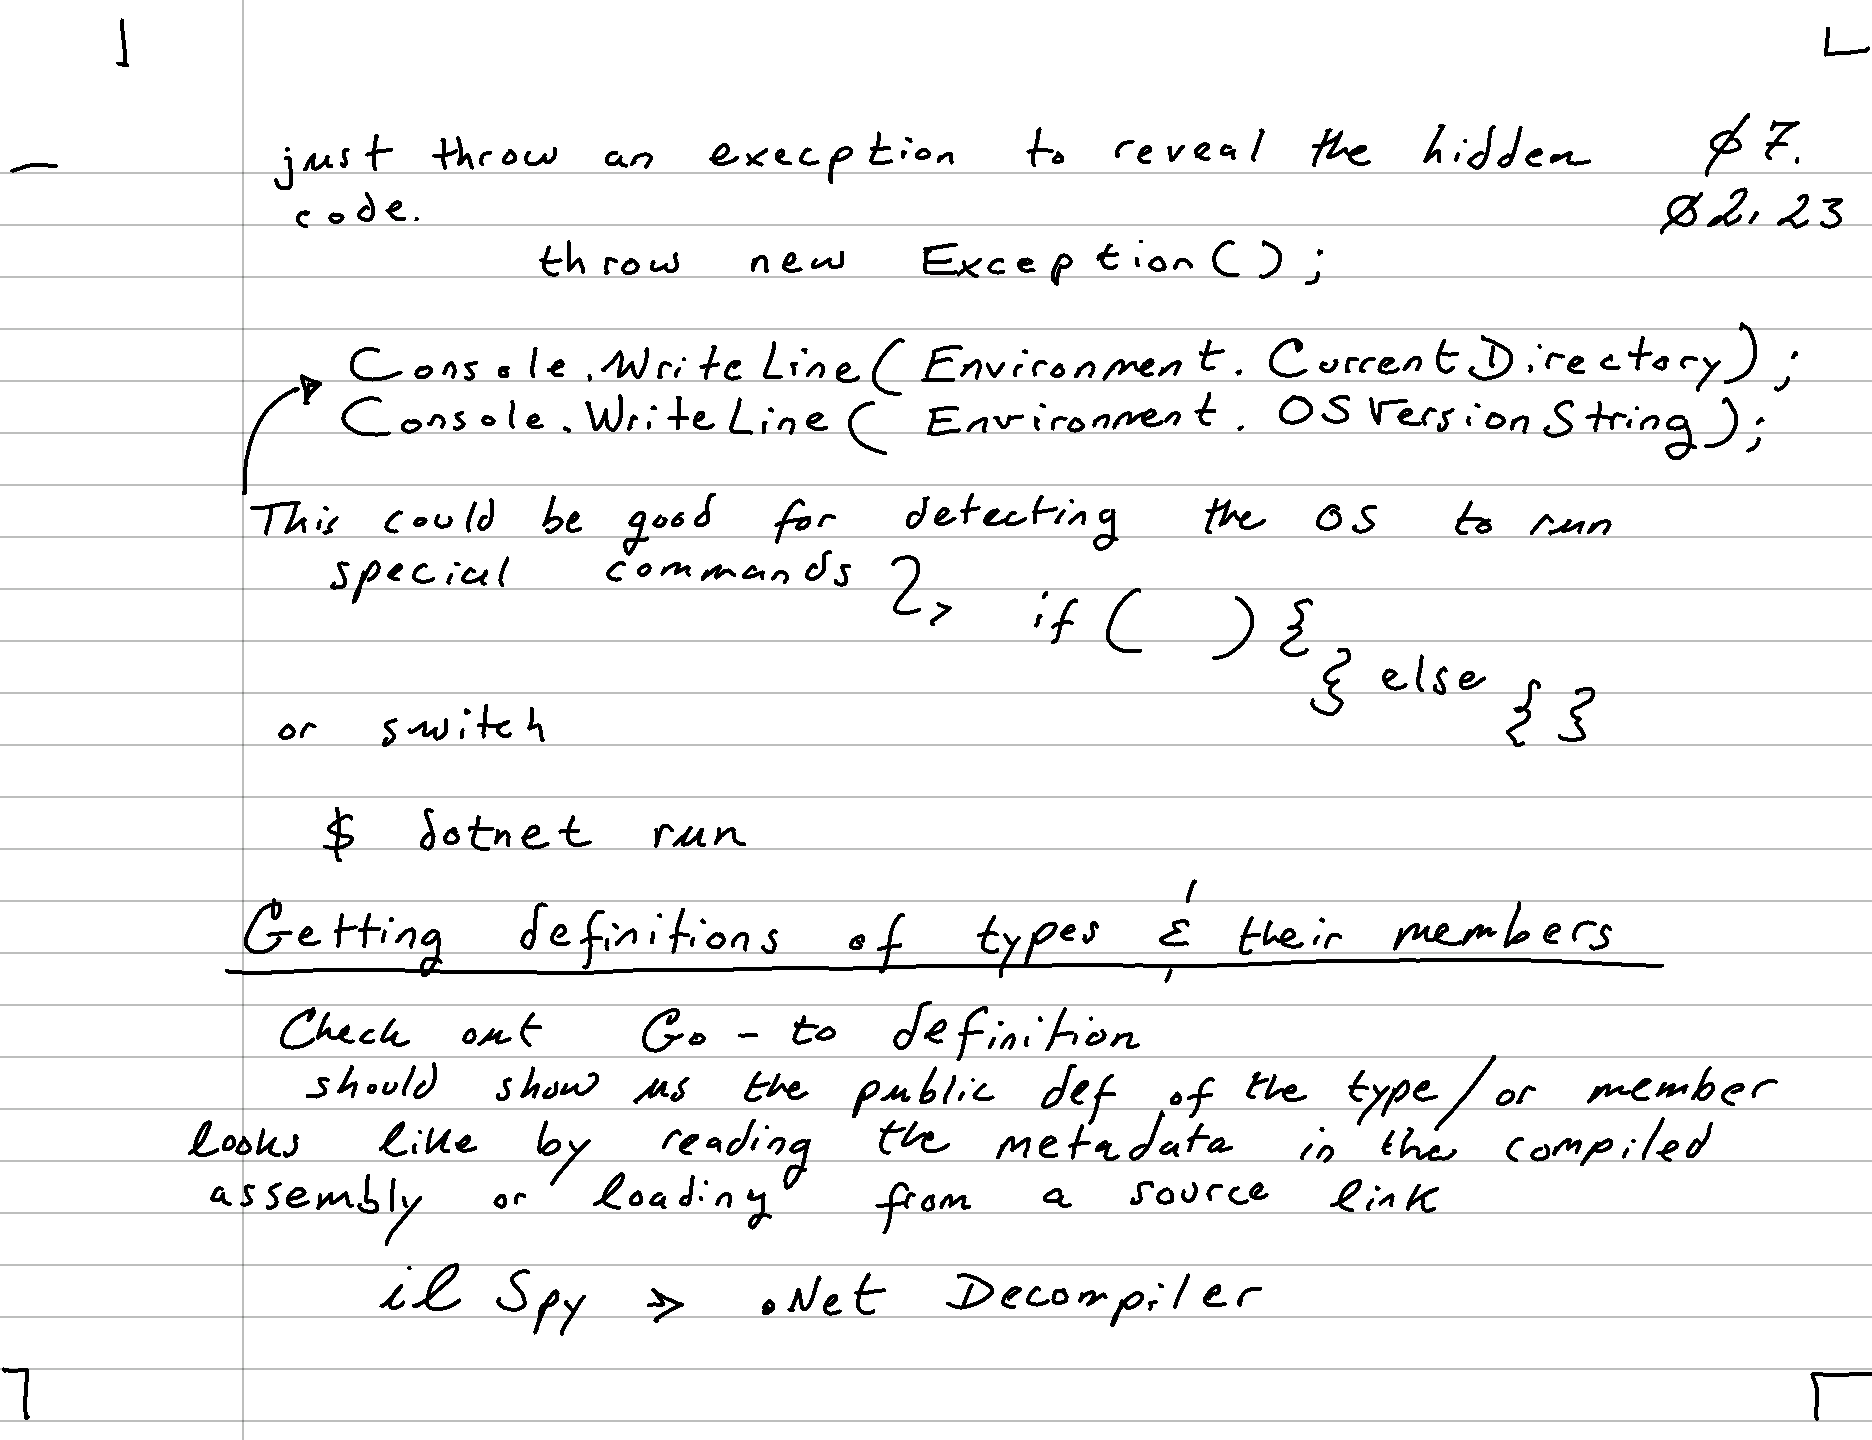 just throw an execption to reveal the hidden Ø7.
code. Ø2.23
throw new Exception();
Console.WriteLine(Environment.CurrentDirectory);
Console.WriteLine(Environment.OSVersionString);
This could be good for detecting the OS to run
special commands
if ( ) {
} else
{ }
or switch
$ dotnet run
Getting definitions of types & their members
Check out Go-to definition
should show us the public def of the type/or member
looks like by reading the metadata in the compiled
assembly or loading from a source link
il Spy >> .Net Decompiler